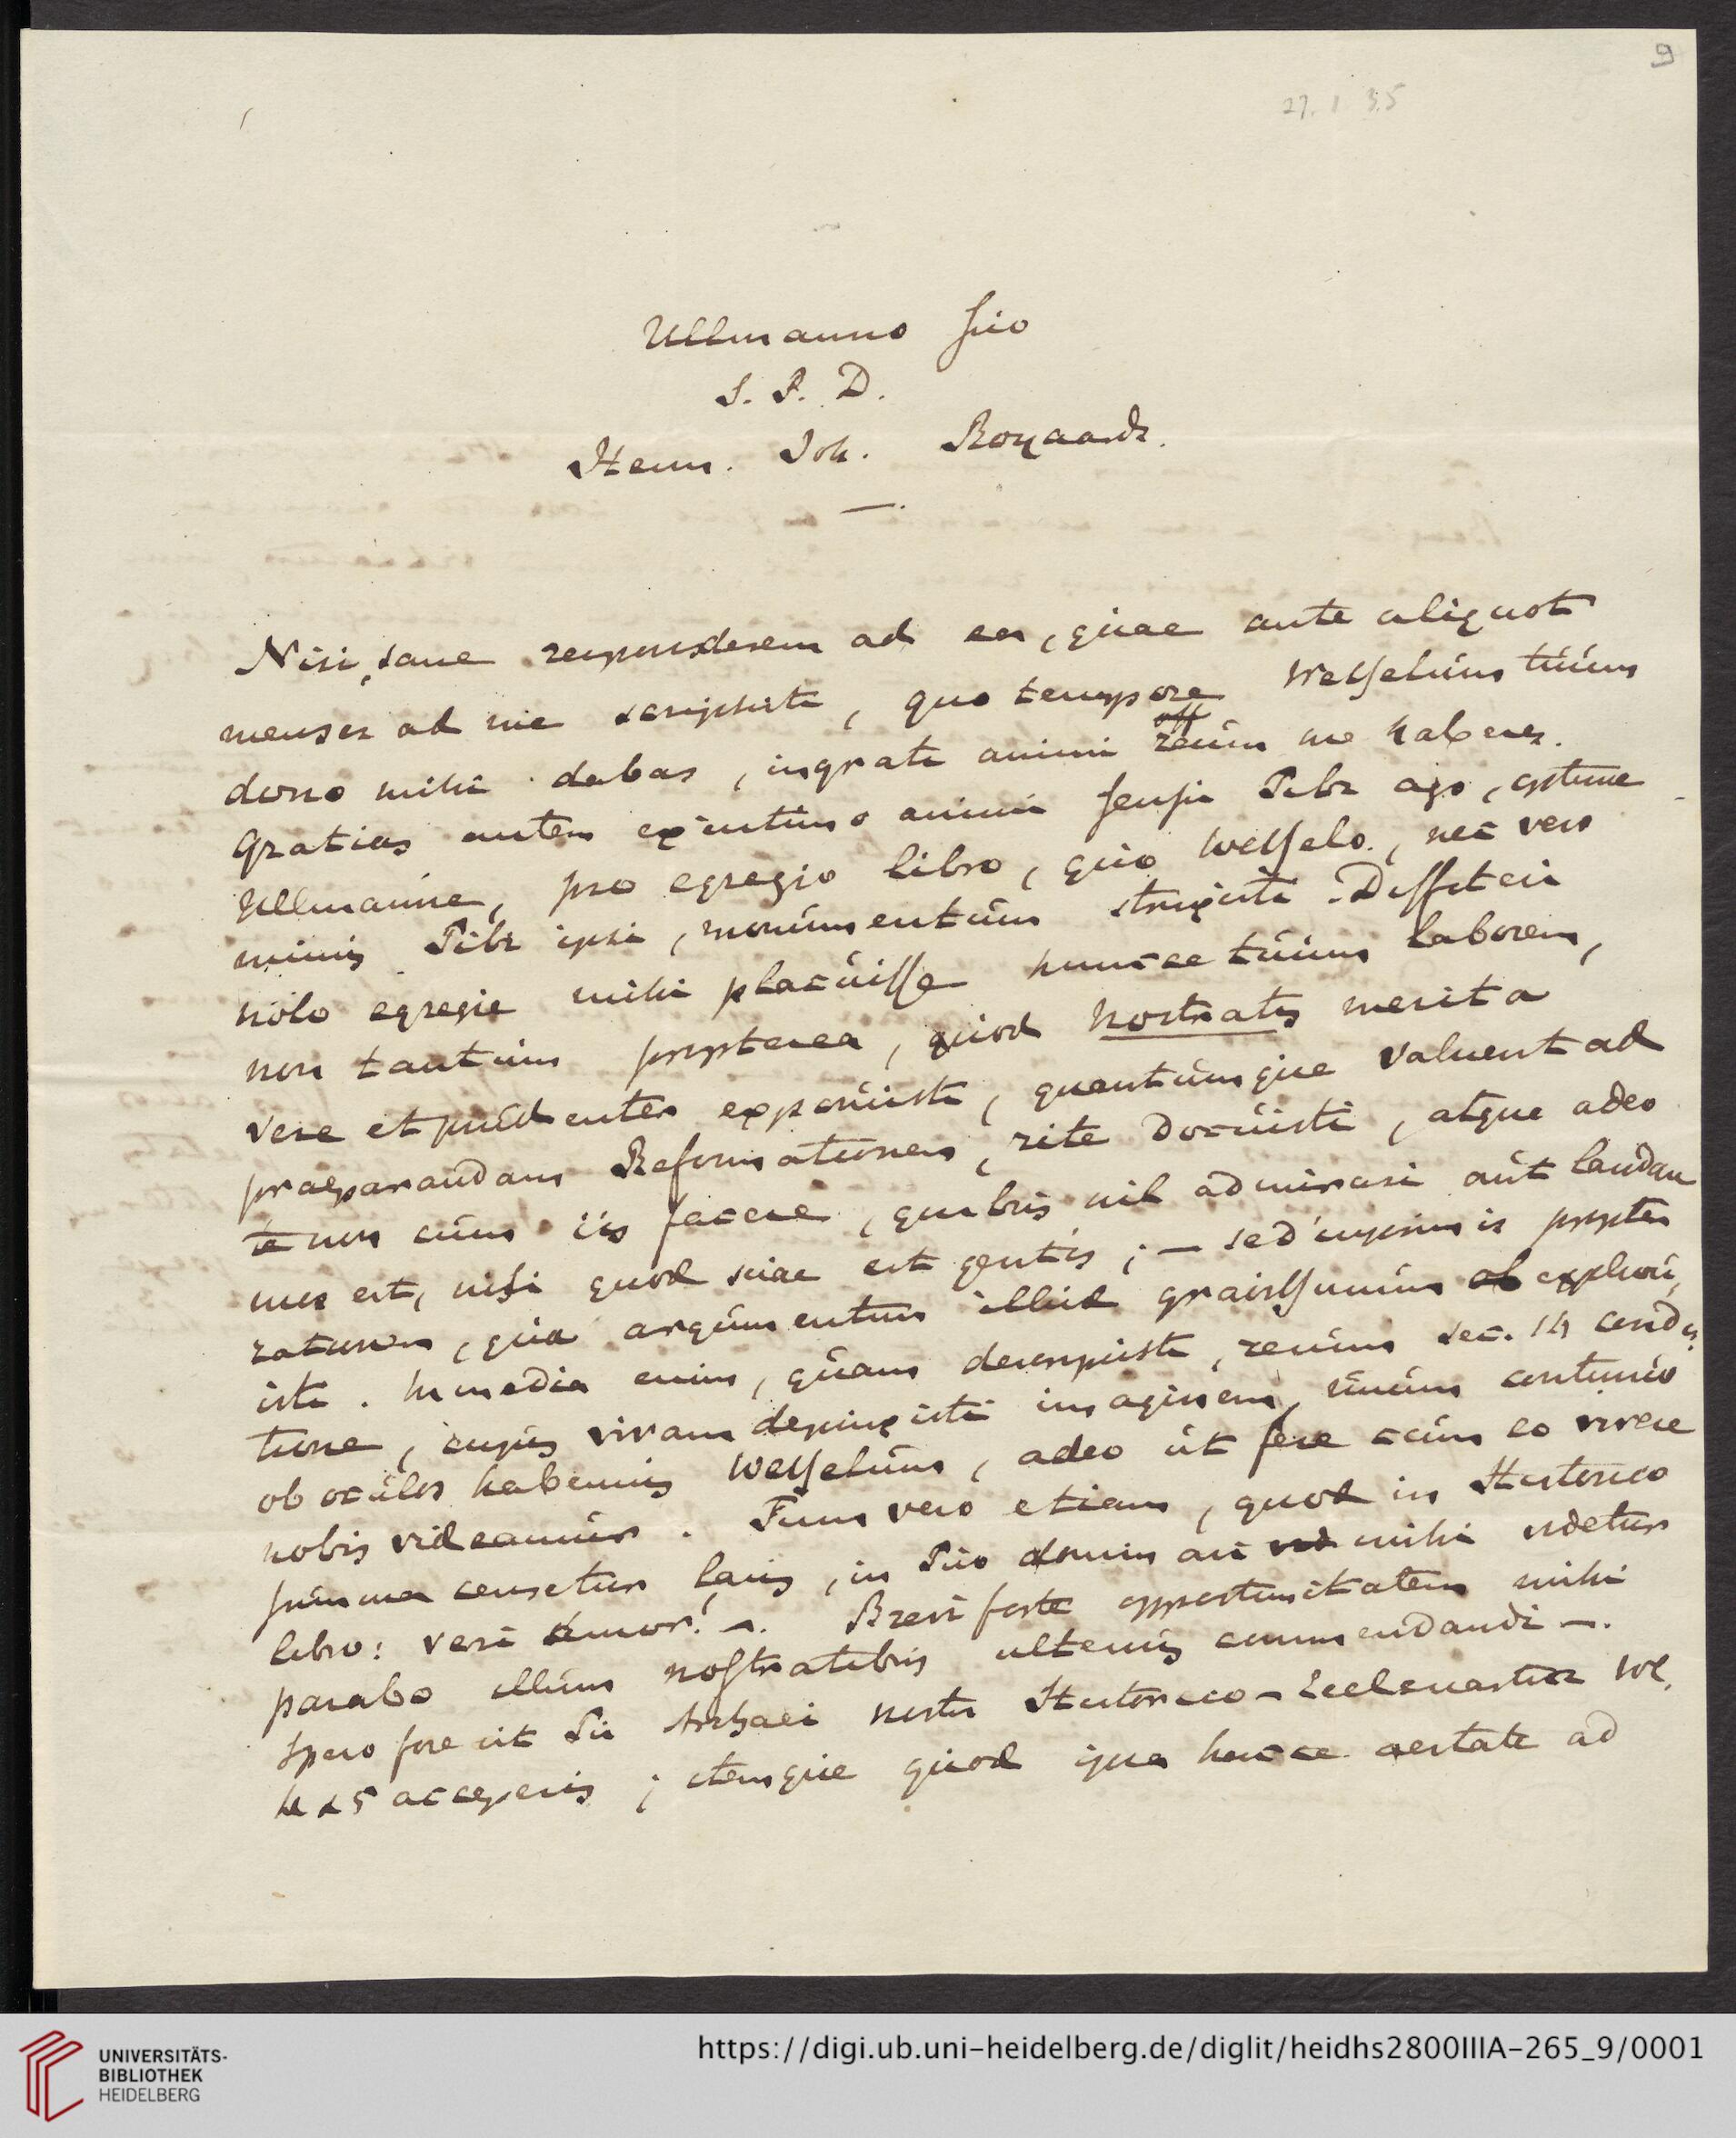 9
27. 1 35
Ullmanno suo
S. P. D.
Henr. Joh. Royaards.
Nisi sane responderem ad ea, quae ante aliquot
menses ad me scripsisti, quo tempore Wesselum tuum
dono mihi dabas, ingrati animi reum me haberes.
Gratias autem ex intimo animi sensu Tibi ago, optime
Ullmanne, pro egregio libro, quo Wesselo, nec vero
minus Tibi ipsi, monumentum struxisti. Diffiteri
nolo egregie mihi placuisse huncce tuum laborem,
non tantum propterea, quod nostratis merita
vere et prudenter exposuisti, quantumque valuerit ad
praeparandam Reformationem, rite docuisti, atque adeo
te non cum iis facere, quibus nil admirari aut laudan
mos est, nisi quod suae est gentis; — sed inprimis propter
rationem, qua argumentum illud gravissimum explicu,
isti. In media enim, quam descripsisti, rerum sec. 14 condi,
tione, cujus vivam depinxisti imaginem, virum continuo
ob oculos habemus Wesselum, adeo ut fere cum eo vivere
nobis videamur. Tum vero etiam, quod in Historico
summa censetur laus, in Tuo dominari mihi videtur
libro: veri amor! —. Brevi forte opportunitatem mihi
parabo illum nostratibus ulterius commendandi —.
Spero fore ut Tu Archaei nostri Historico-Ecclesiastici vol.
4 & 5 acceperis; itemque quod ipse hacce aestate ad
UNIVERSITÄTS-
BIBLIOTHEK
HEIDELBERG
https://digi.ub.uni-heidelberg.de/diglit/heidhs2800IIIA-265_9/0001